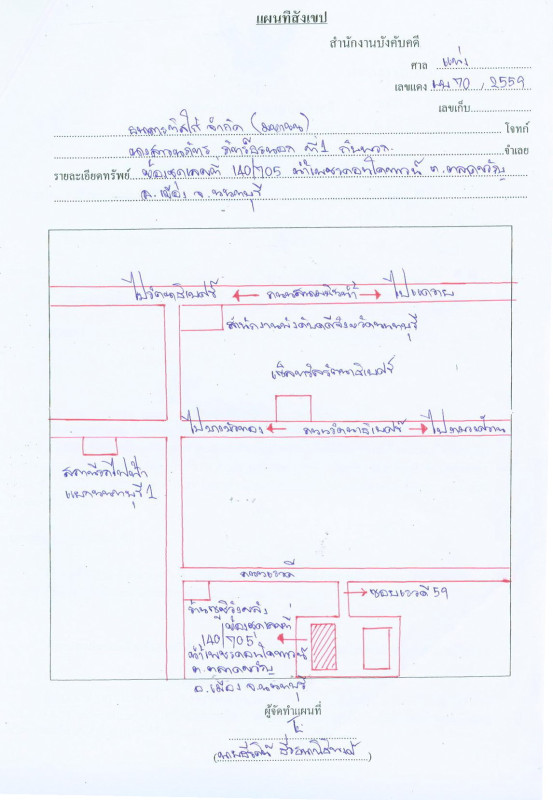 แผนที่สังเขป
สำนักงานบังคับคดี
ศาล แพ่ง
เลขแดง ผบ 70 / 2559
เลขเก็บ
ธนาคารทิสโก้ จำกัด (มหาชน) โจทก์
ที่ 1 กับพวก จำเลย
รายละเอียดทรัพย์ ห้องชุดเลขที่ 140/705 ต.ตลาดขวัญ
อ.เมือง จ.นนทบุรี
ไปรัตนาธิเบศร์ ถนนสนามบินน้ำ ไปแคราย
สำนักงานบังคับคดีจังหวัดนนทบุรี
เซ็นทรัลรัตนาธิเบศร์
ไปบางบัวทอง ถนนรัตนาธิเบศร์ ไปงามวงศ์วาน
สถานีรถไฟฟ้า
แยกนนทบุรี 1
ถนนเรวดี
ซอยเรวดี 59
ห้องชุดเลขที่
140/705
ต.ตลาดขวัญ
อ.เมือง จ.นนทบุรี
ผู้จัดทำแผนที่